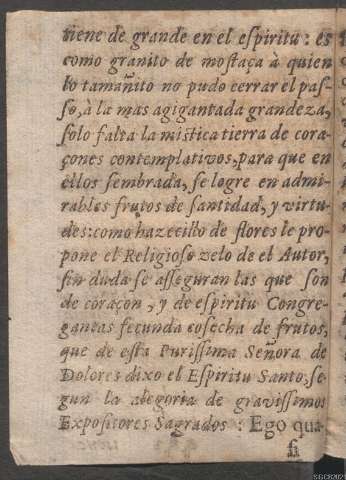 tiene de grande en el eſpiritu: es
como granito de moſtaça à quien
lo tamañito no pudo cerrar el paſ-
ſo, à la mas agigantada grandeza,
ſolo falta la miſtica tierra de cora-
çones contemplativos, para que en
ellos ſembrada, ſe logre en admi-
rables frutos de ſantidad, y virtu-
des: como hazecillo de flores le pro-
pone el Religioſo zelo de el Autor,
ſin duda ſe aſſeguran las que ſon
de coraçon, y de eſpiritu Congre-
gantas fecunda coſecha de frutos,
que de eſta Puriſſima Señora de
Dolores dixo el Eſpiritu Santo, ſe-
gun la alegoria de graviſſimos
Expoſitores Sagrados: Ego quã
ſi